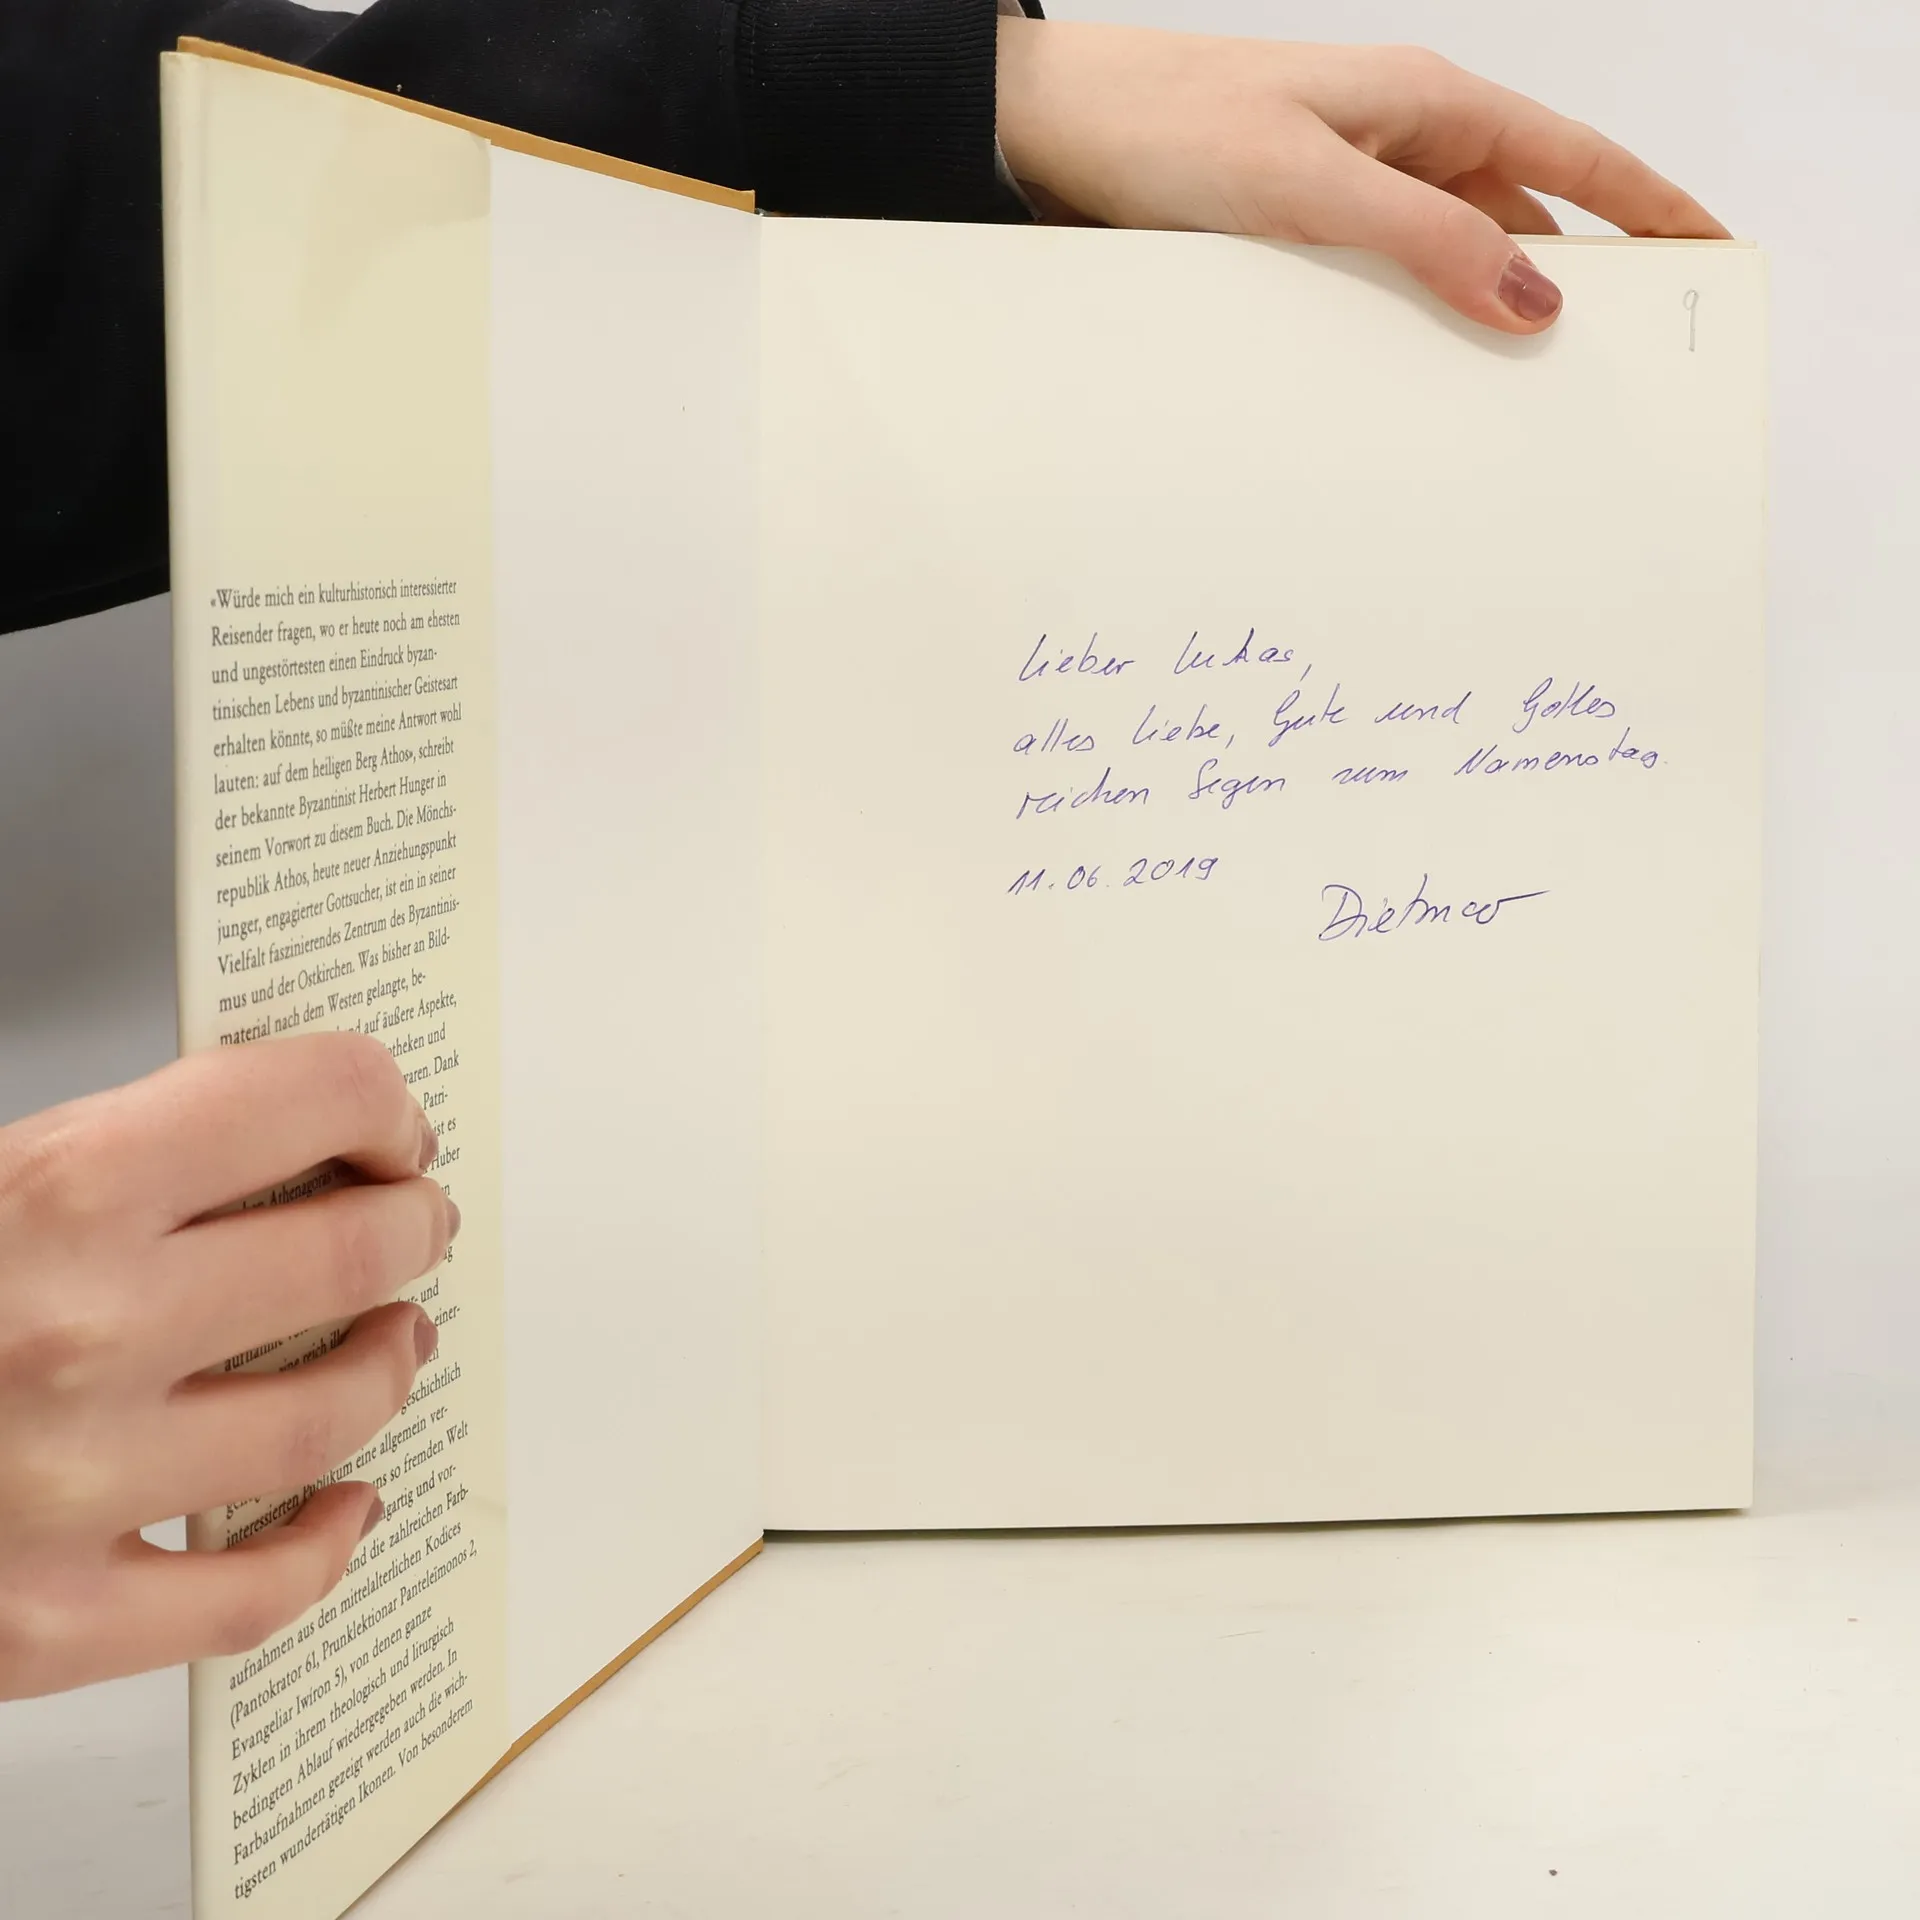 «Würde mich ein kulturhistorisch interessierter
Reisender fragen, wo er heute noch am ehesten
und ungestörtesten einen Eindruck byzan-
tinischen Lebens und byzantinischer Geistesart
erhalten könnte, so müßte meine Antwort wohl
lauten: auf dem heiligen Berg Athos», schreibt
der bekannte Byzantinist Herbert Hunger in
seinem Vorwort zu diesem Buch. Die Mönchs-
republik Athos, heute neuer Anziehungspunkt
junger, engagierter Gottsucher, ist ein in seiner
Vielfalt faszinierendes Zentrum des Byzantinis-
mus und der Ostkirchen. Was bisher an Bild-
material nach dem Westen gelangte, be-
auf äußere Aspekte,
und
Dank
Patri-
ist es
Huber
Athenagoras
und
einer-
eine reich
geschichtlich
eine allgemein ver-
interessierten Publikum uns so fremden Welt
und vor-
sind die zahlreichen Farb-
aufnahmen aus den mittelalterlichen Kodices
(Pantokrator 61, Prunklektionar Panteleimonos 2,
Evangeliar Iwiron 5), von denen ganze
Zyklen in ihrem theologisch und liturgisch
bedingten Ablauf wiedergegeben werden. In
Farbaufnahmen gezeigt werden auch die wich-
tigsten wundertätigen Ikonen. Von besonderem
9
Lieber Lukas,
alles Liebe, Gute und Gottes
reichen Segen zum Namenstag.
11.06.2019
Dietmar